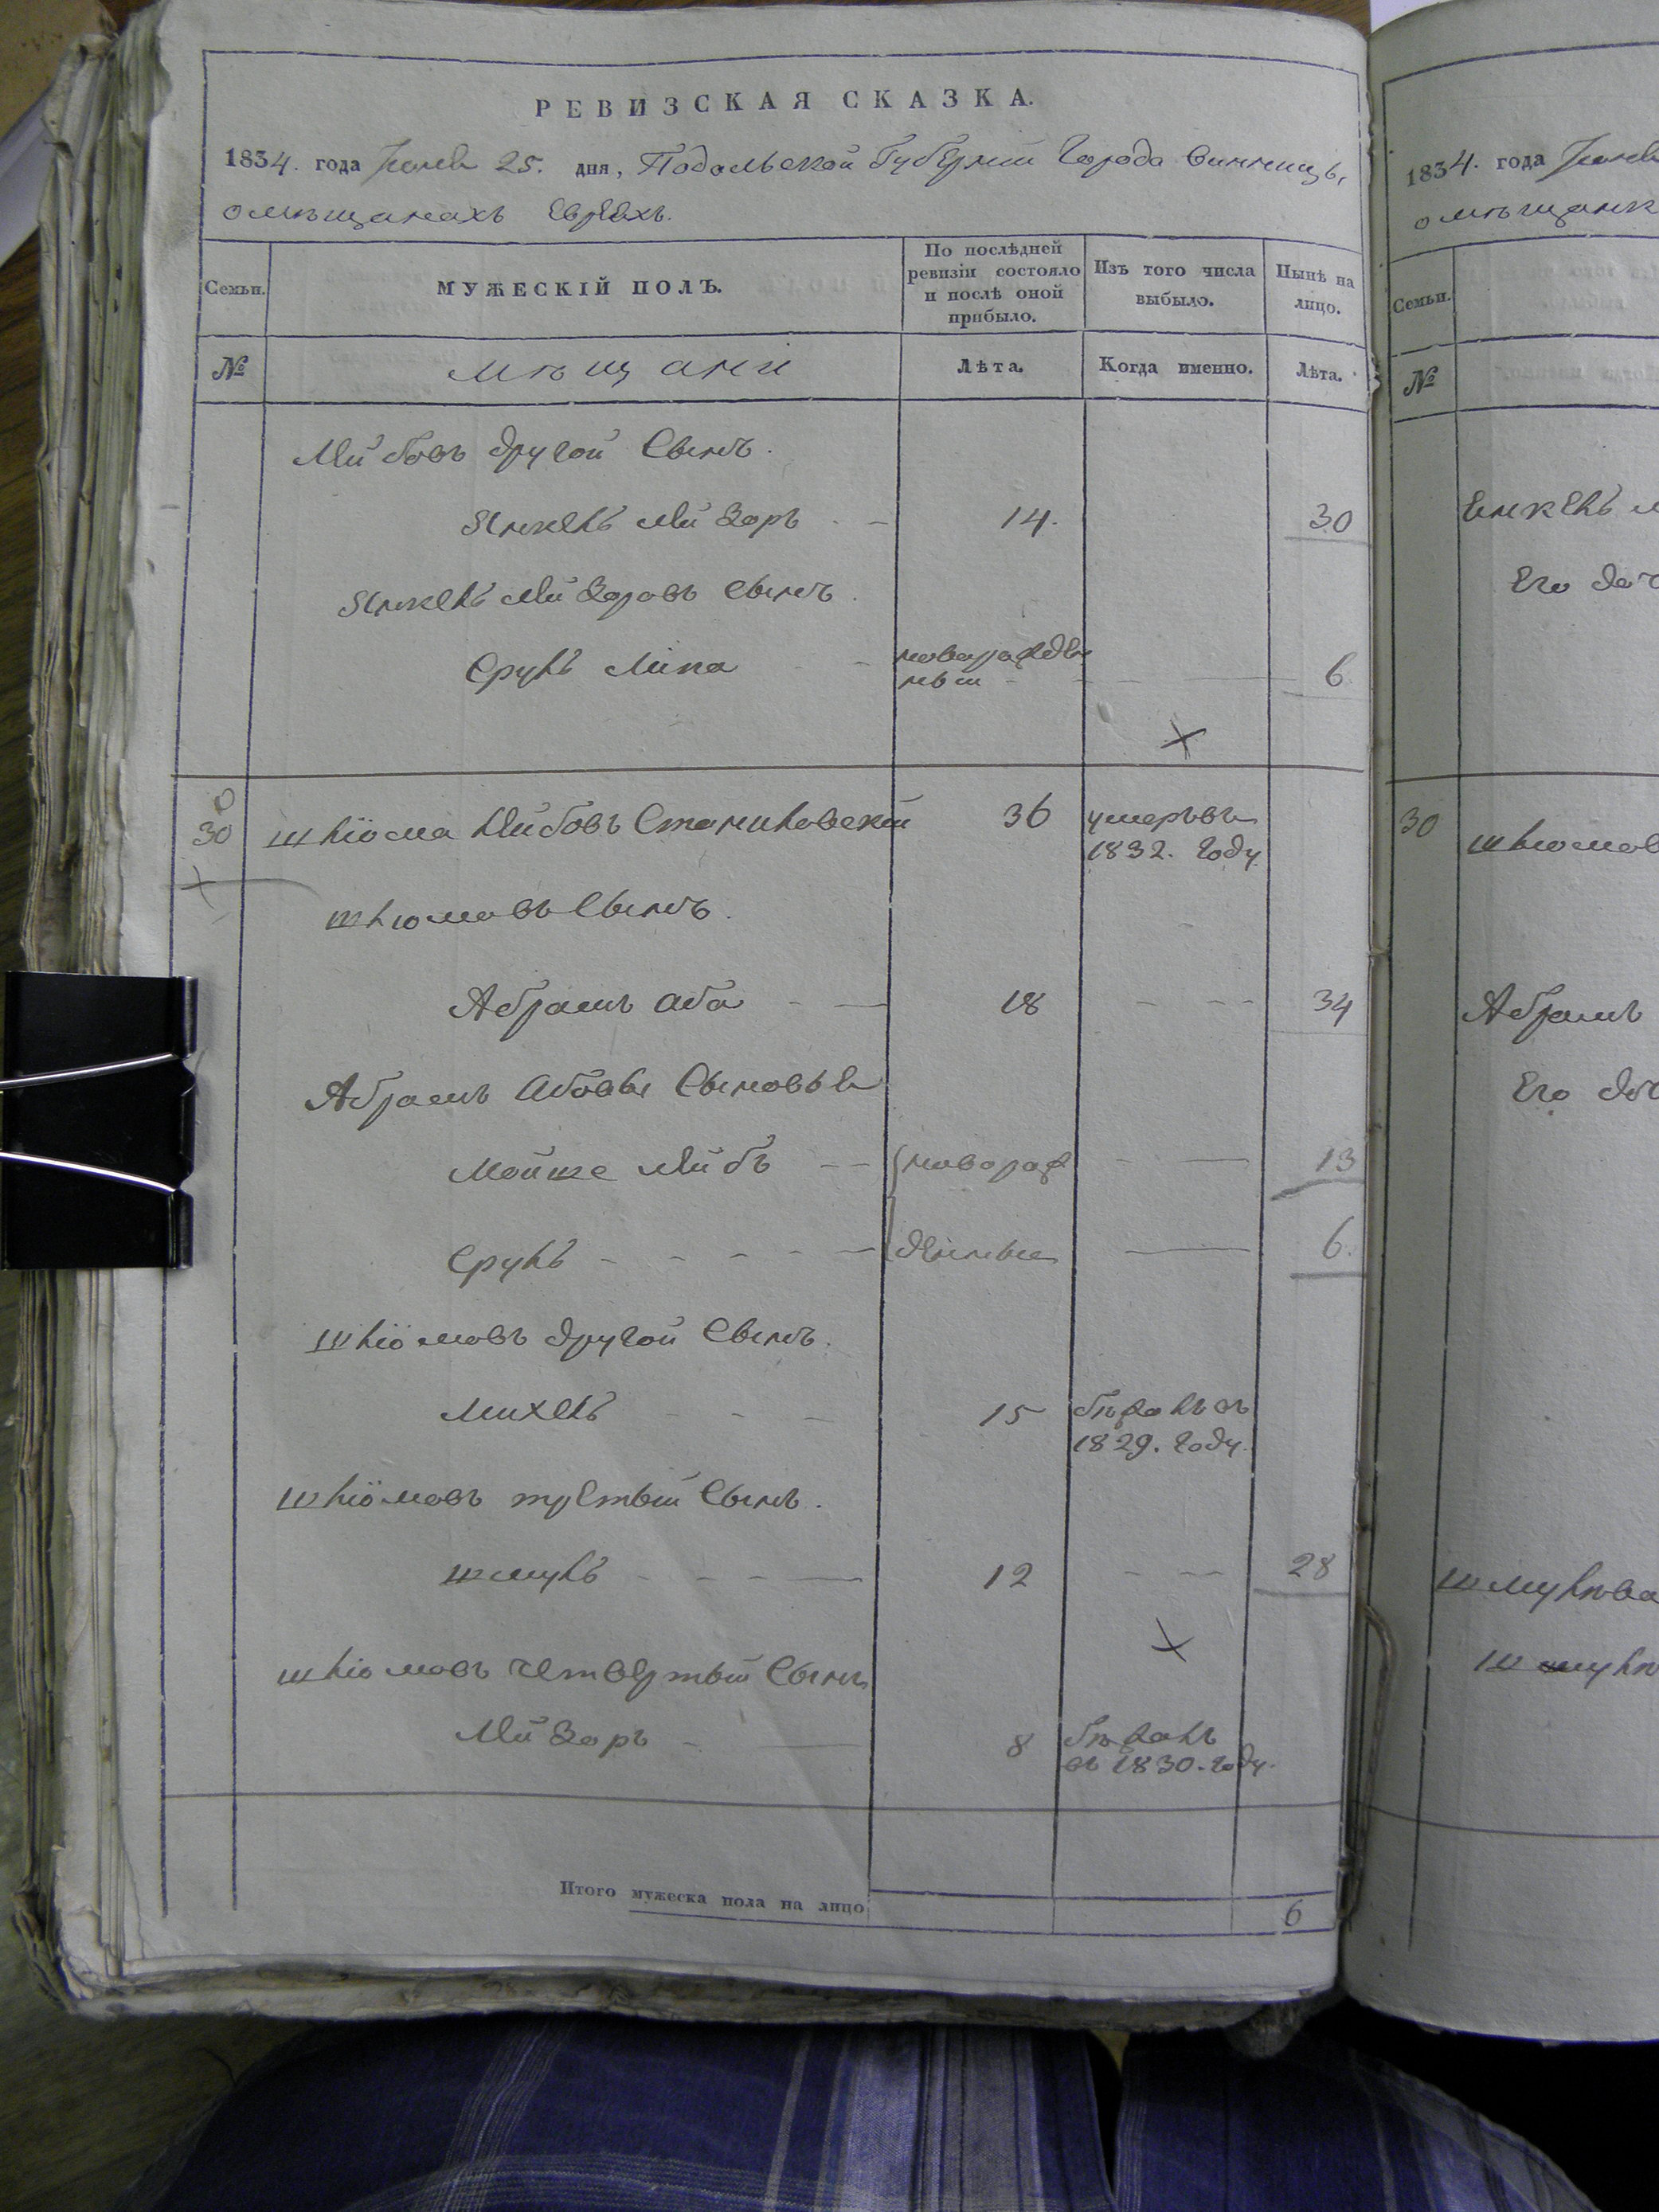 РЕВИЗСКАЯ СКАЗКА.
1834. года 25. дня, Подольской Губерніи Города Винницы,
о мѣщанахъ Евреяхъ.
Семьи. МУЖЕСКІЙ ПОЛЪ. По послѣдней ревизіи состояло и послѣ оной прибыло. Изъ того числа выбыло. Нынѣ на лицо.
№ мѣщани Лѣта. Когда именно. Лѣта.
Лейбовъ другой Сынъ.
Янкель Лейзоръ 14. 30
Янкель Лейзоровъ Сынъ.
Срулъ Липа новорожден 6
ный
30 Шліома Лейбовъ 36 умеръ въ
1832. Году
Шлюмовъ Сынъ.
Абрамъ Аба 18 34
Абрамъ Абовы Сыновья
Мойше Лейбъ новорож 13
Срулъ денные 6.
Шліомовъ другой Сынъ.
Михель 15 бѣжалъ въ
1829. Году.
Шліомовъ третый Сынъ.
Шмуль 12 28
Шліомовъ четвертый Сынъ
Лейзоръ 8 бѣжалъ
въ 1830. Году.
Итого мужеска пола на лицо 6
1834. года
о мѣщанк
Семьи.
№
Енкель
Его доч
30 Шлюмов
Абрамъ
Его доч
Шмулѣва